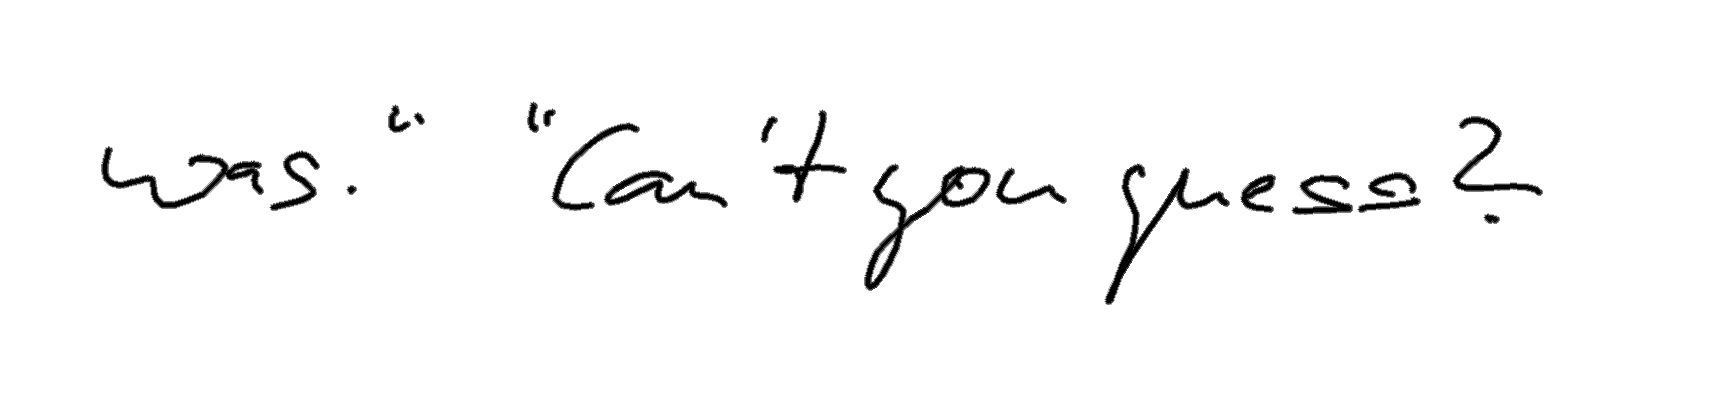 was." "Can't you guess?